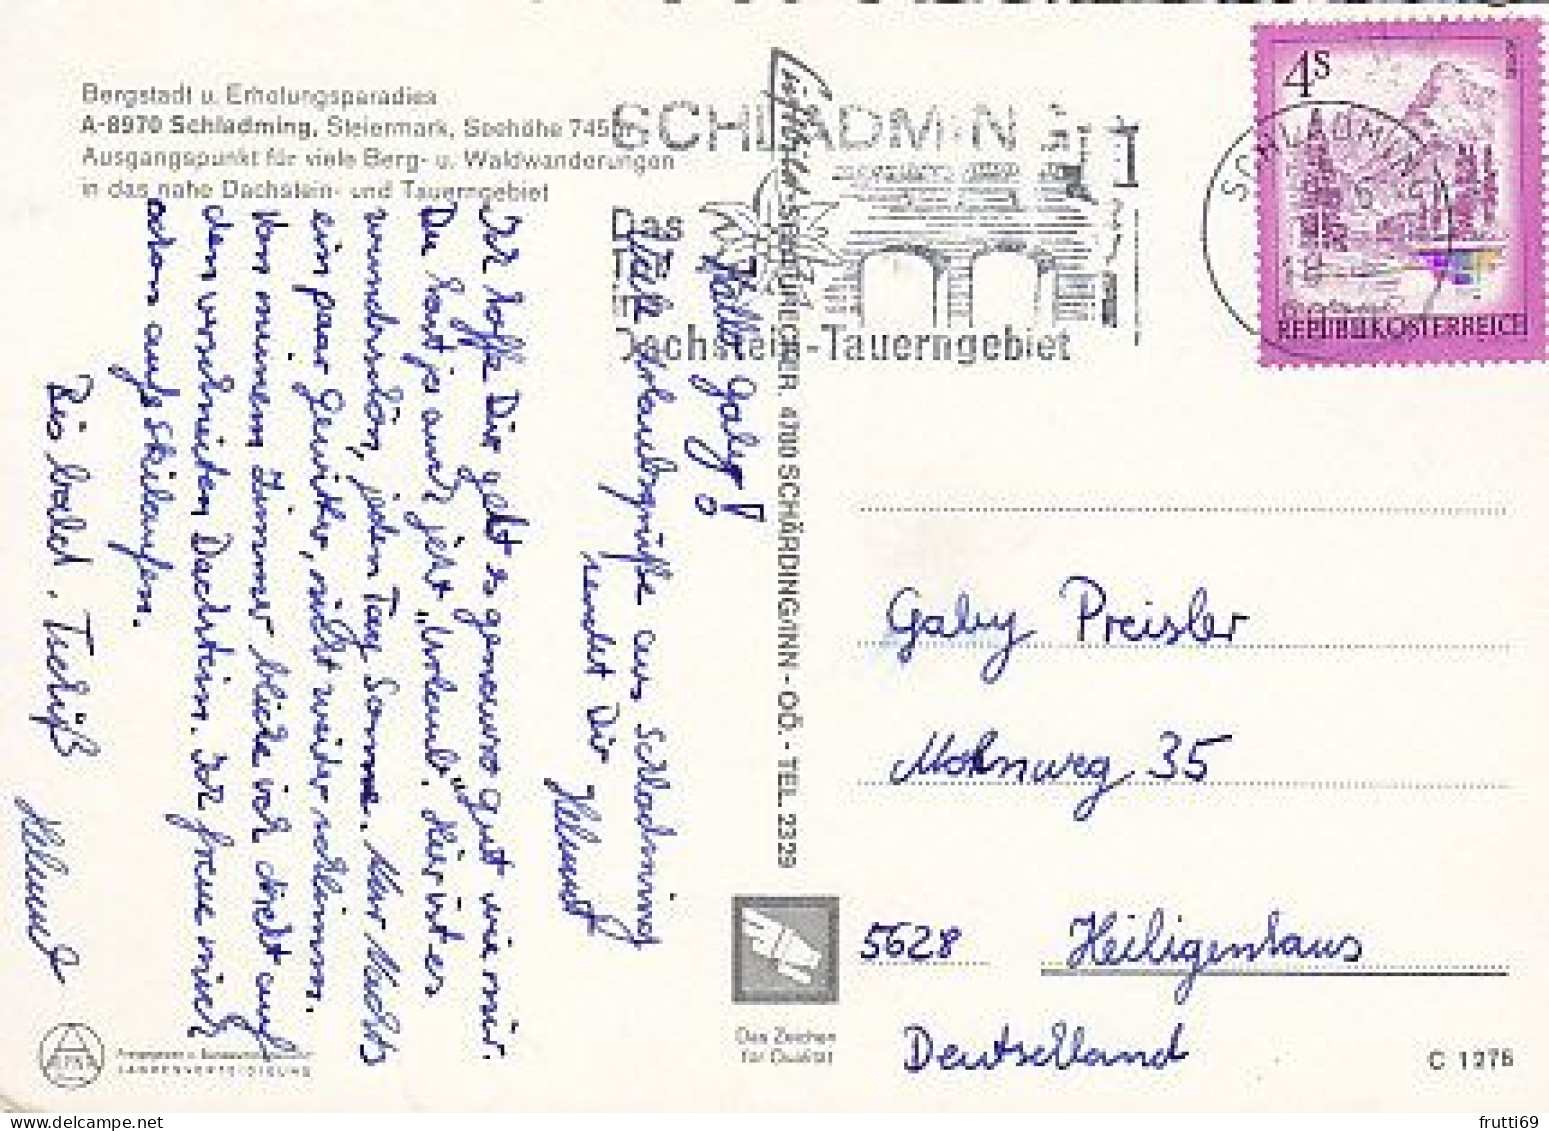 Bergstadt u. Erholungsparadies
A-8970 Schladming, Steiermark, Seehöhe 745m
Ausgangspunkt für viele Berg- u. Waldwanderungen
in das nahe Dachstein- und Tauerngebiet
SCHLADMIN
Das
Dachstein-Tauerngebiet
SCHLADMIN
4S
REPUBLIK ÖSTERREICH
Hallo Gaby!
Viele Urlaubsgrüße aus Schladming
sendet Dir
Helmut
Ich hoffe Dir geht es genauso gut wie mir.
Du hast ja auch jetzt „Urlaub". Hier ist es
wunderschön, jeden Tag Sonne. Nur Nachts
ein paar Gewitter, nicht weiter schlimm.
Von meinem Zimmer blicke ich direkt auf
den verschneiten Dachstein. Ich freue mich
schon aufs Skilaufen.
Bis bald. Tschüß
Helmut
4780 SCHÄRDING/INN - OÖ. - TEL. 2329
Gaby Preisler
Mohnweg 35
5628 Heiligenhaus
Deutschland
Das Zeichen
für Qualität
LANDESVERTEIDIGUNG
C 1276
frutti69